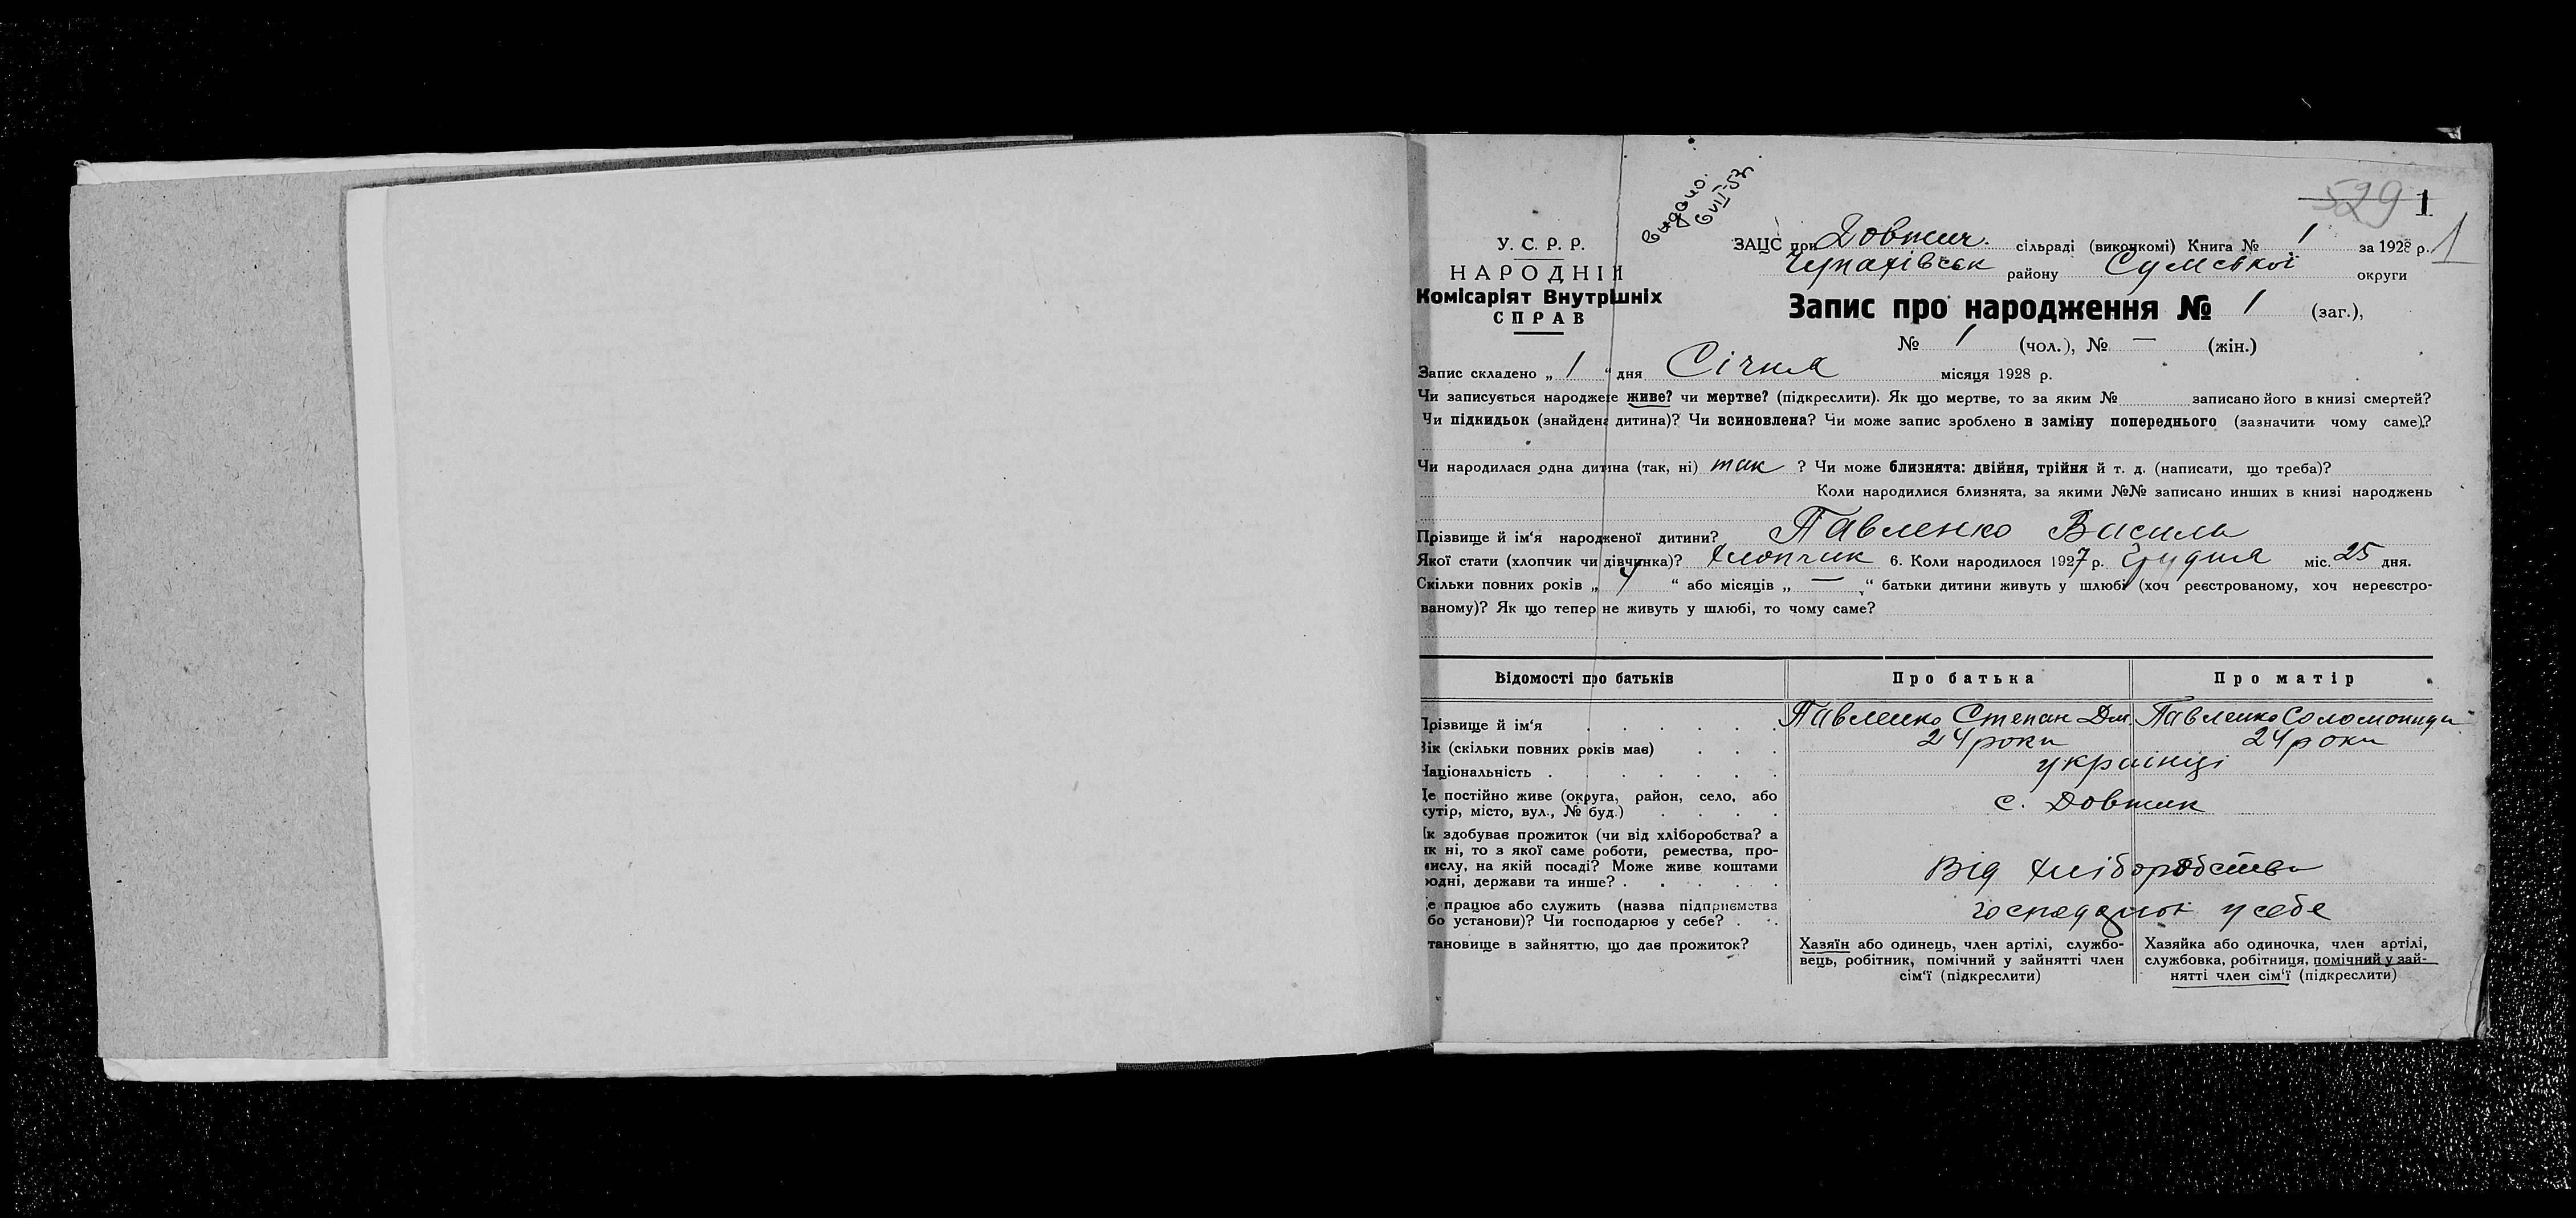 видано.
6 VII-57.
529 1
1
У. С. Р. Р.
НАРОДНІЙ
Комісаріят Внутрішніх
СПРАВ
ЗАЦС при Довжич. сільраді (виконкомі) Книга № 1 за 1928 р.
Чупахівськ району Сумської округи
Запис про народження № 1 (заг.),
№ 1 (чол.), № — (жін.)
Запис складено „ 1 “ дня Січня місяця 1928 р.
Чи записується народжене живе? чи мертве? (підкреслити). Як що мертве, то за яким № записано його в книзі смертей?
Чи підкидьок (знайдена дитина)? Чи всиновлена? Чи може запис зроблено в заміну попереднього (зазначити чому саме)?
Чи народилася одна дитина (так, ні) так ? Чи може близнята: двійня, трійня й т. д. (написати, що треба)?
Коли народилися близнята, за якими №№ записано инших в книзі народжень
Прізвище й ім‘я народженої дитини? Павленко Василь
Якої стати (хлопчик чи дівчинка)? Хлопчик 6. Коли народилося 1927 р. Грудня міс. 25 дня.
Скільки повних років „ 4 “ або місяців „ — “ батьки дитини живуть у шлюбі (хоч реєстрованому, хоч нереєстро-
ваному)? Як що тепер не живуть у шлюбі, то чому саме?
Відомості про батьків Про батька Про матір
Прізвище й ім‘я Павленко Степан Дм. Павленко Соломонида
Вік (скільки повних років має) 24 роки 24 роки
Національність українці
Де постійно живе (округа, район, село, або
хутір, місто, вул., № буд.) с. Довжик
Як здобуває прожиток (чи від хліборобства? а
як ні, то з якої саме роботи, ремества, про-
мислу, на якій посаді? Може живе коштами
родні, держави та инше? Від хліборобства
Де працює або служить (назва підприємства
або установи)? Чи господарює у себе? у себе
Становище в зайняттю, що дає прожиток?
Хазяїн або одинець, член артілі, службо-
вець, робітник, помічний у зайнятті член
сім‘ї (підкреслити)
Хазяйка або одиночка, член артілі,
службовка, робітниця, помічний у зай-
нятті член сім‘ї (підкреслити)